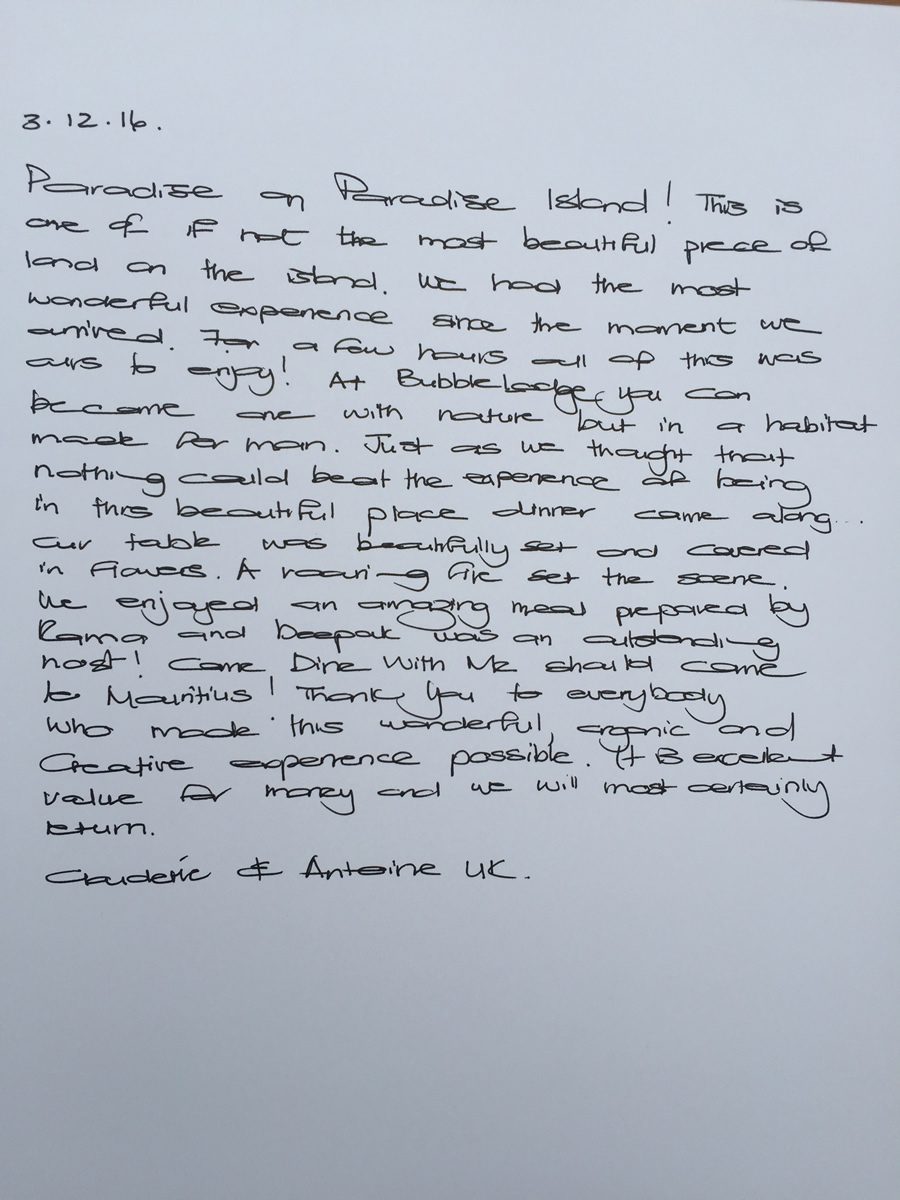 3.12.16.
Paradise on Paradise Island! This is
one of if not the most beautiful piece of
land on the island. We had the most
wonderful experience since the moment we
arrived. For a few hours all of this was
ours to enjoy! At Bubble Lodge, you can
become one with nature but in a habitat
made for man. Just as we thought that
nothing could beat the experience of being
in this beautiful place dinner came along...
our table was beautifully set and covered
in flowers. A roaring fire set the scene.
We enjoyed an amazing meal prepared by
Rama and Deepak was an outstanding
host! Come Dine With Me should come
to Mauritius! Thank you to everybody
who made this wonderful, organic and
Creative experience possible. It is excellent
value for money and we will most certainly
return.
& Antoine UK.